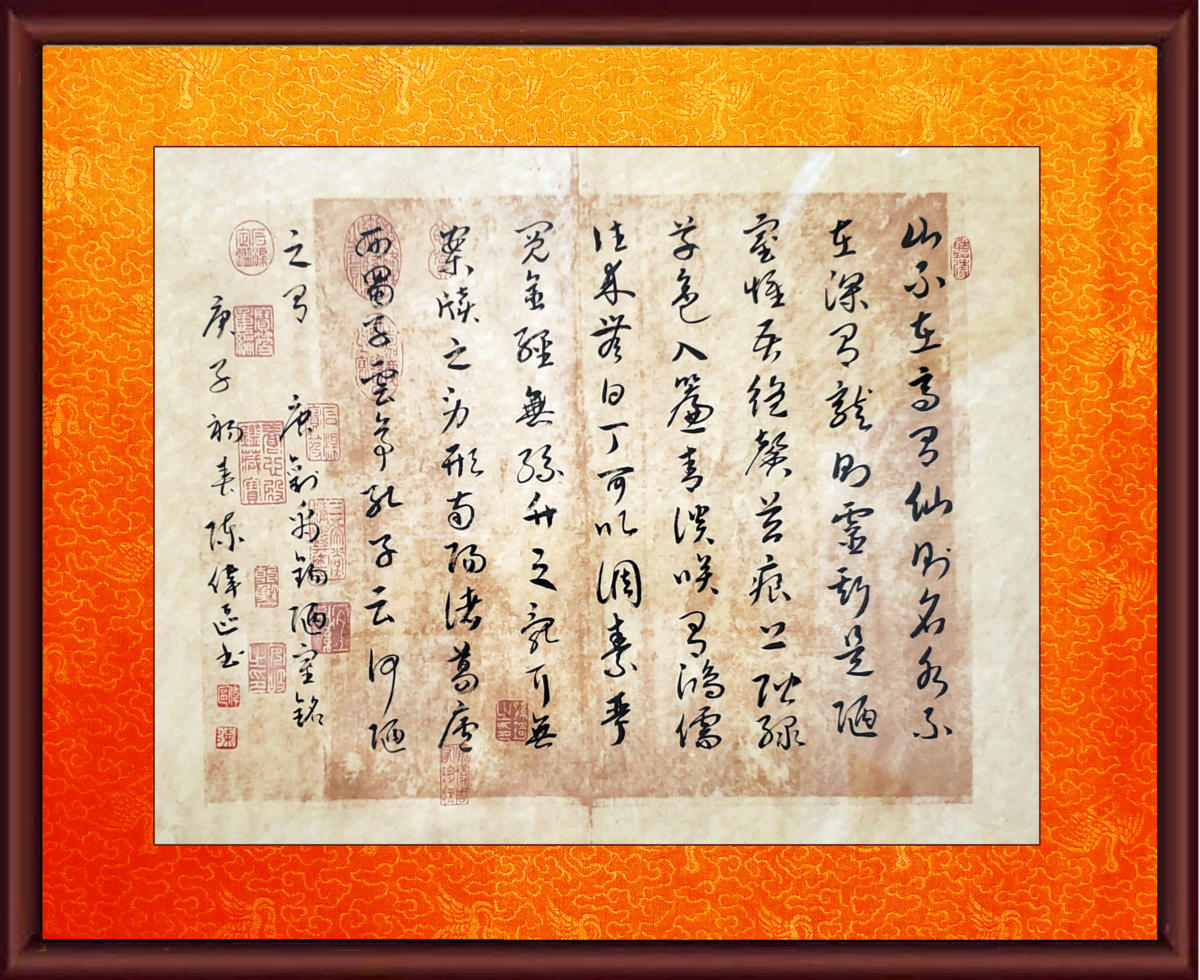 山不在高有仙則名水不
在深有龍則靈斯是陋
室惟吾德馨苔痕上階綠
草色入簾青談咲有鴻儒
往來無白丁可以調素琴
閱金經無絲竹之亂耳無
案牘之勞形南陽諸葛廬
西蜀子雲亭孔子云何陋
之有 唐劉禹錫陋室銘
庚子初春陳偉書
陳